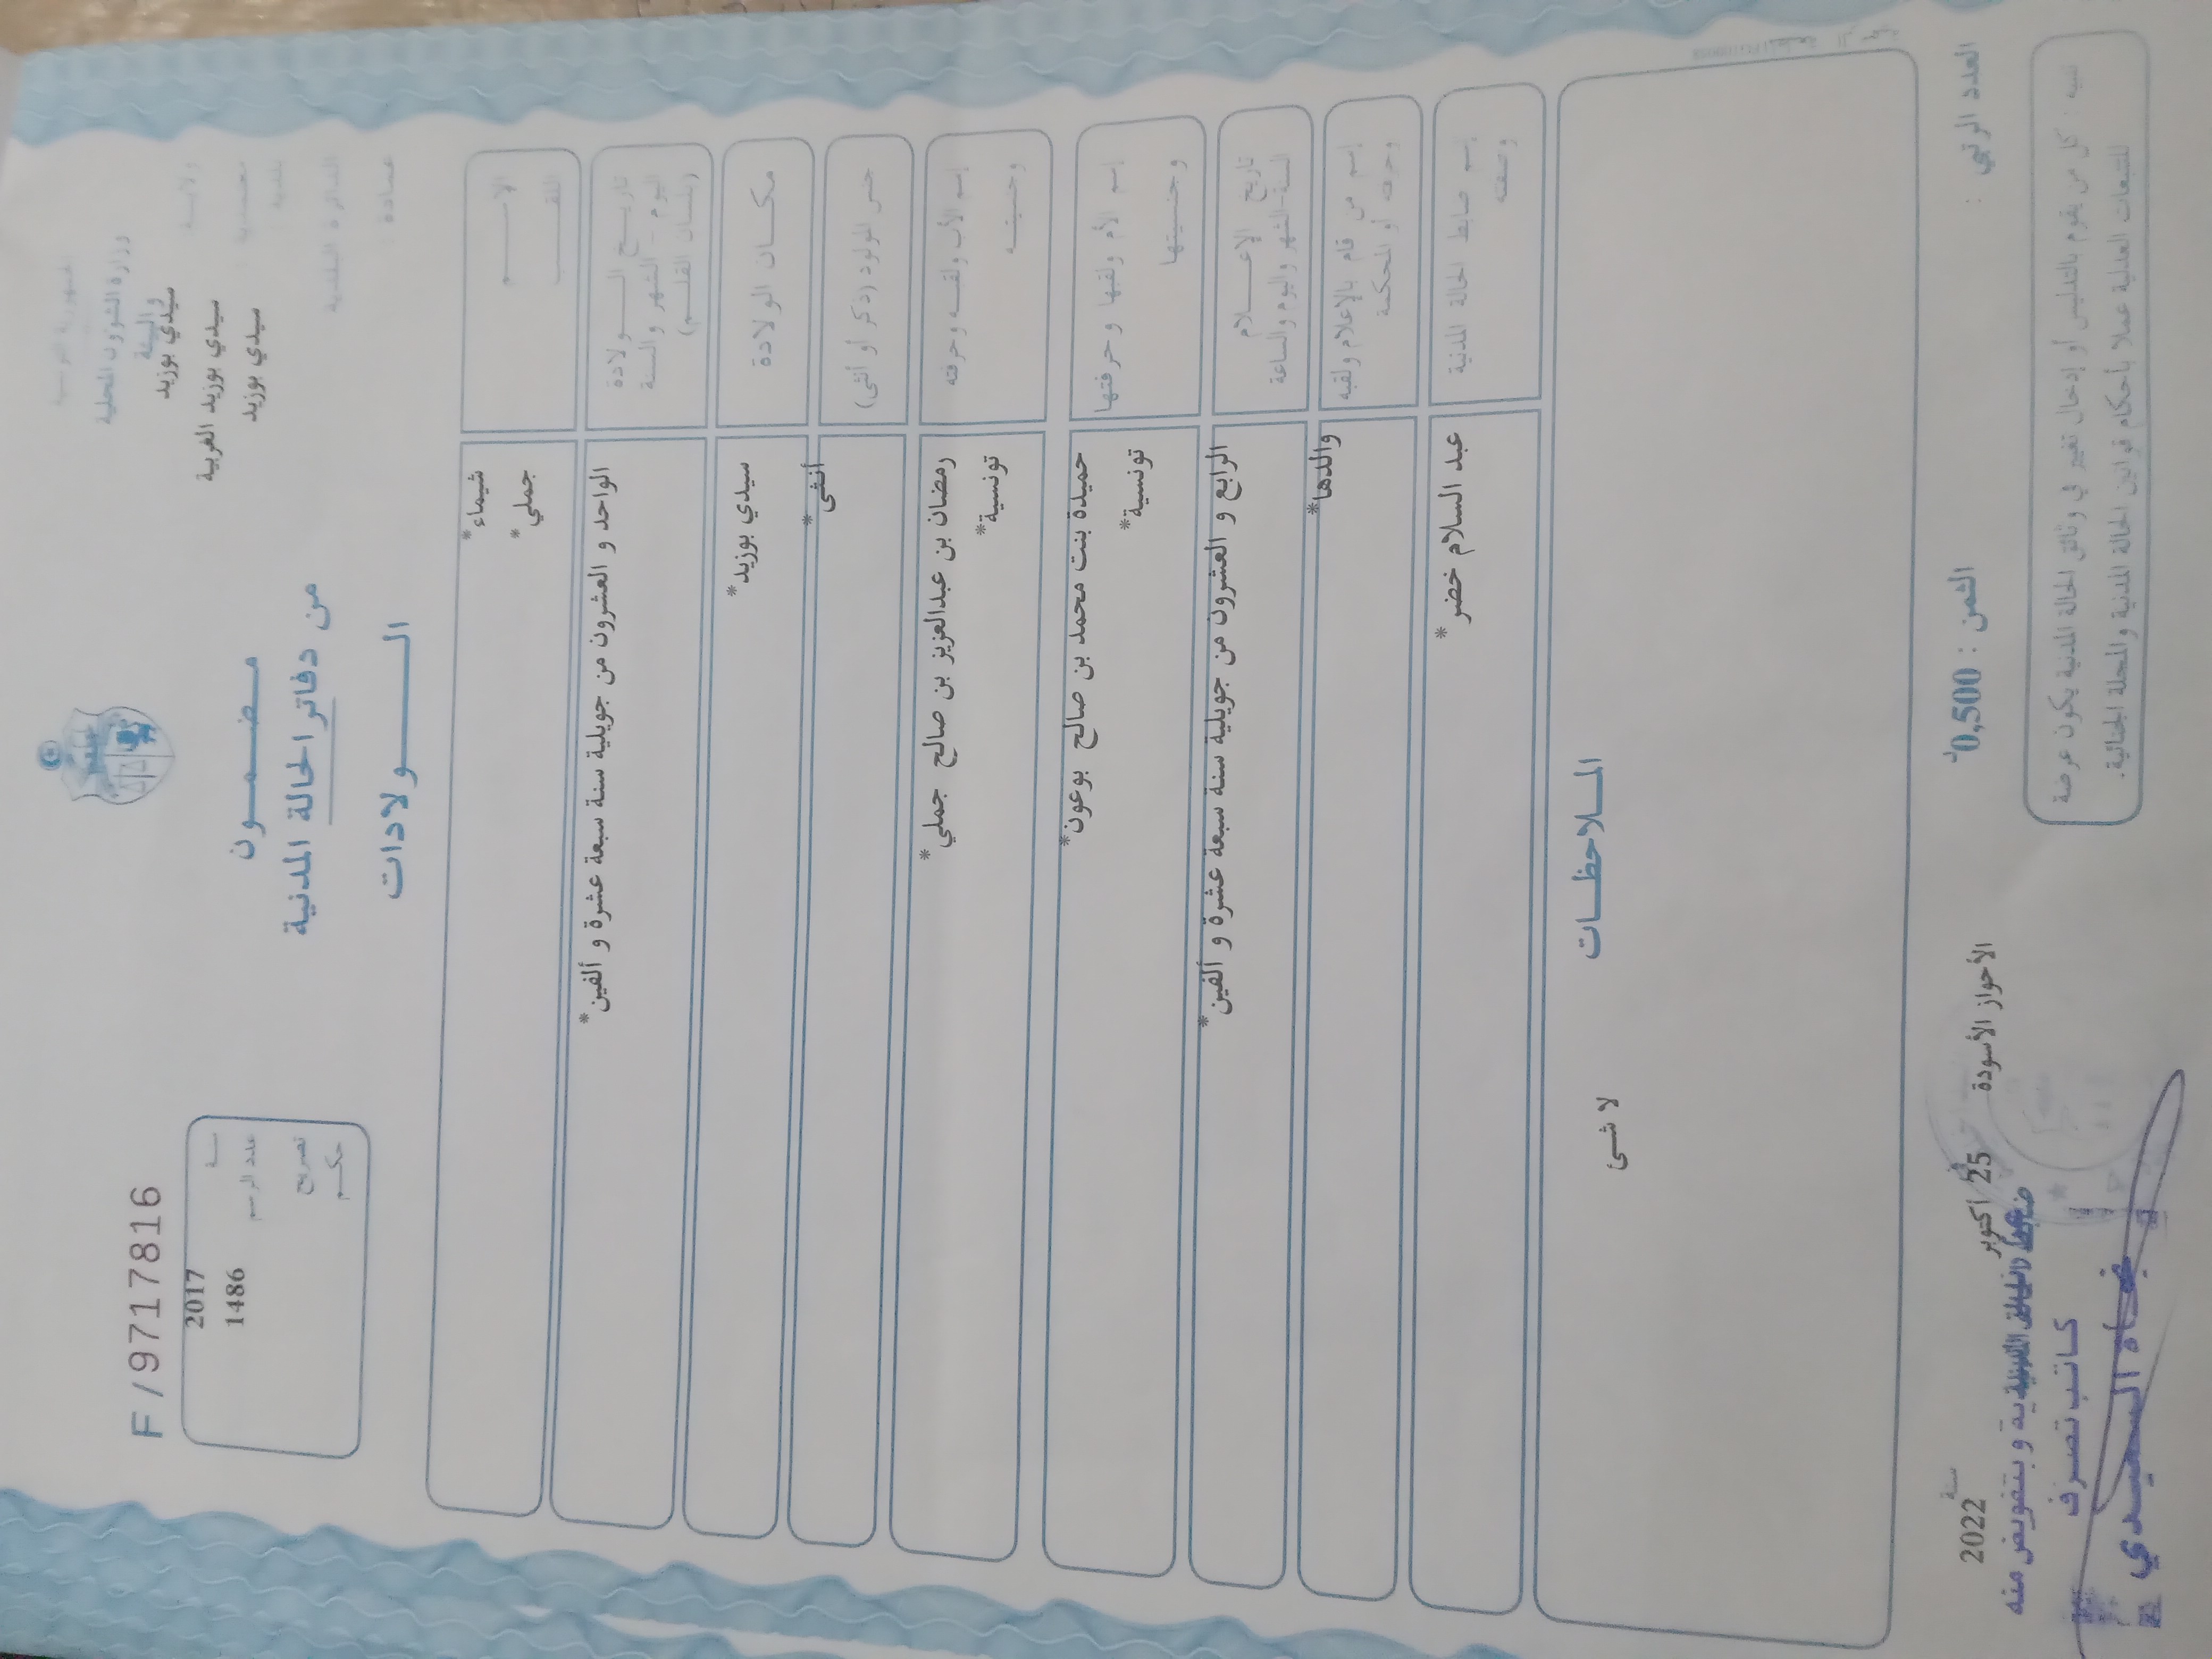 الجمهورية التونسية
وزارة الشؤون المحلية
والبيئة
ولايـــة سيدي بوزيد
معتمدية : سيدي بوزيد الغربية
بلدية : سيدي بوزيد
الدائرة البلدية
عمادة :
F/9717816
سنـــة 2017
عدد الرسم 1486
تصريح
حكـــم
مـضـمـــون
من دفاتر الحالة المدنية
الـــــولادات
الاســـــم شيماء*
اللقـــــب جملي*
تاريـــخ الـــولادة
اليوم - الشهر والسنة
(بلسان القلـــم)
الواحد و العشرون من جويلية سنة سبعة عشرة و ألفين*
مكـــان الولادة سيدي بوزيد*
جنس المولود (ذكر أو أنثى) أنثى*
إسم الأب ولقبـــه وحرفته رمضان بن عبدالعزيز بن صالح جملي*
وجنسيتـــه تونسية*
إسم الأم ولقبها وحرفتها حميدة بنت محمد بن صالح بوعون*
وجنسيتها تونسية*
تاريخ الاعـــلام
السنة-الشهر واليوم والساعة
الرابع و العشرون من جويلية سنة سبعة عشرة و ألفين*
إسم من قام بالإعلام ولقبه
وحرفته أو المحكمة
والدها*
إسم ضابط الحالة المدنية
وصفته
عبد السلام خضر*
المـلاحظـــات
لا شئ
العدد الرتبي :
الثمن : 0,500د
الأحواز الأسودة في 25 أكتوبر سنة 2022
تنبيه : كل من يقوم بالتدليس أو إدخال تغيير في وثائق الحالة المدنية يكون عرضة
للتتبعات العدلية عملا بأحكام قوانين الحالة المدنية والمجلة الجنائية.
و بتفويض منه
كاتب تصرف
السعيدي